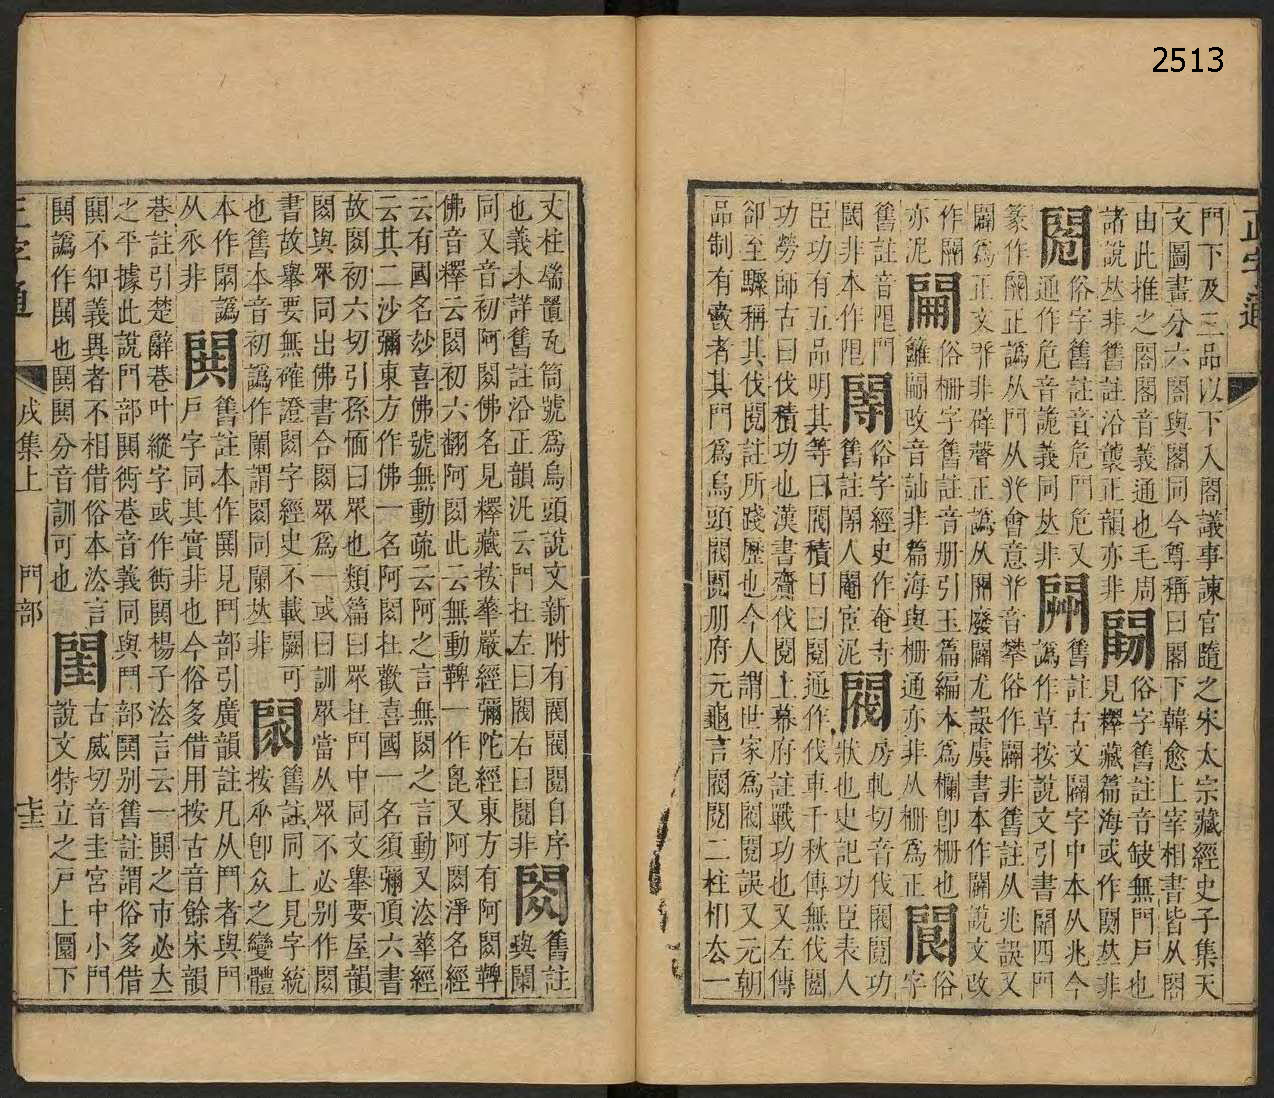 2513
正字通
門下及三品以下入閤議事諫官隨之宋太宗藏經史子集天
文圖書分六閣與閤同今尊稱曰閣下韓愈上宰相書皆从閤
由此推之閤閣音義通也毛周
諸說𠀤非舊註沿襲正韻亦非
俗字舊註音缺無門戶也
見釋藏篇海或作闕𠀤非
閽
俗字舊註音危門危又
通作危音詭義同𠀤非
舊註古文關字中本从兆今
譌作草按說文引書闢四門
篆作𨳿正譌从門从𠬜會意𠬜音攀俗作闢非舊註从兆誤又
闢爲正文𠬜非辟聲正譌从闢廢闢尤誤虞書本作闢說文改
作闢
俗柵字舊註音册引玉篇編木爲欄卽柵也
亦泥
籬闢改音訕非篇海與柵通亦非从柵爲正
俗
字
舊註音限門
閾非本作限
俗字經史作奄寺
舊註閹人閹宦泥
閥
房軋切音伐閥閱功
狀也史記功臣表人
臣功有五品明其等曰閥積日曰閱通作伐車千秋傳無伐閱
功勞師古曰伐積功也漢書齎伐閱上幕府註戰功也又左傳
郤至驟稱其伐閱註所踐歷也今人謂世家爲閥閱誤又元朝
品制有爵者其門爲烏頭閥閱册府元龜言閥閱二柱相去一
丈柱端置瓦筒號爲烏頭說文新附有閥閥閱自序
也義未詳舊註沿正韻汎云門在左曰閥右曰閱非
閦
舊註
與闌
同又音初阿閦佛名見釋藏按華嚴經彌陀經東方有阿閦鞞
佛音釋云閦初六翻阿閦此云無動鞞一作毘又阿閦淨名經
云有國名妙喜佛號無動疏云阿之言無閦之言動又法華經
云其二沙彌東方作佛一名阿閦在歡喜國一名須彌頂六書
故閦初六切引孫愐曰眾也類篇曰眾在門中同文舉要屋韻
閦與眾同出佛書合閦眾爲一或曰訓眾當从眾不必别作閦
書故舉要無確證閦字經史不載闕可
也舊本音初譌作闌謂閦同闌𠀤非
舊註同上見字統
按乑卽众之變體
本作閦譌
从乑非
閧
舊註本作鬨見鬥部引廣韻註凡从鬥者與門
戶字同其實非也今俗多借用按古音餘宋韻
巷註引楚辭巷叶縱字或作衖閧楊子法言云一閧之市必大
之平據此說門部閧衖巷音義同與鬥部鬨别舊註謂俗多借
閧不知義異者不相借俗本法言
鬨譌作閧也閧鬨分音訓可也
閨
古威切音圭宮中小門
說文特立之戶上圜下
正字通
戌集上
門部